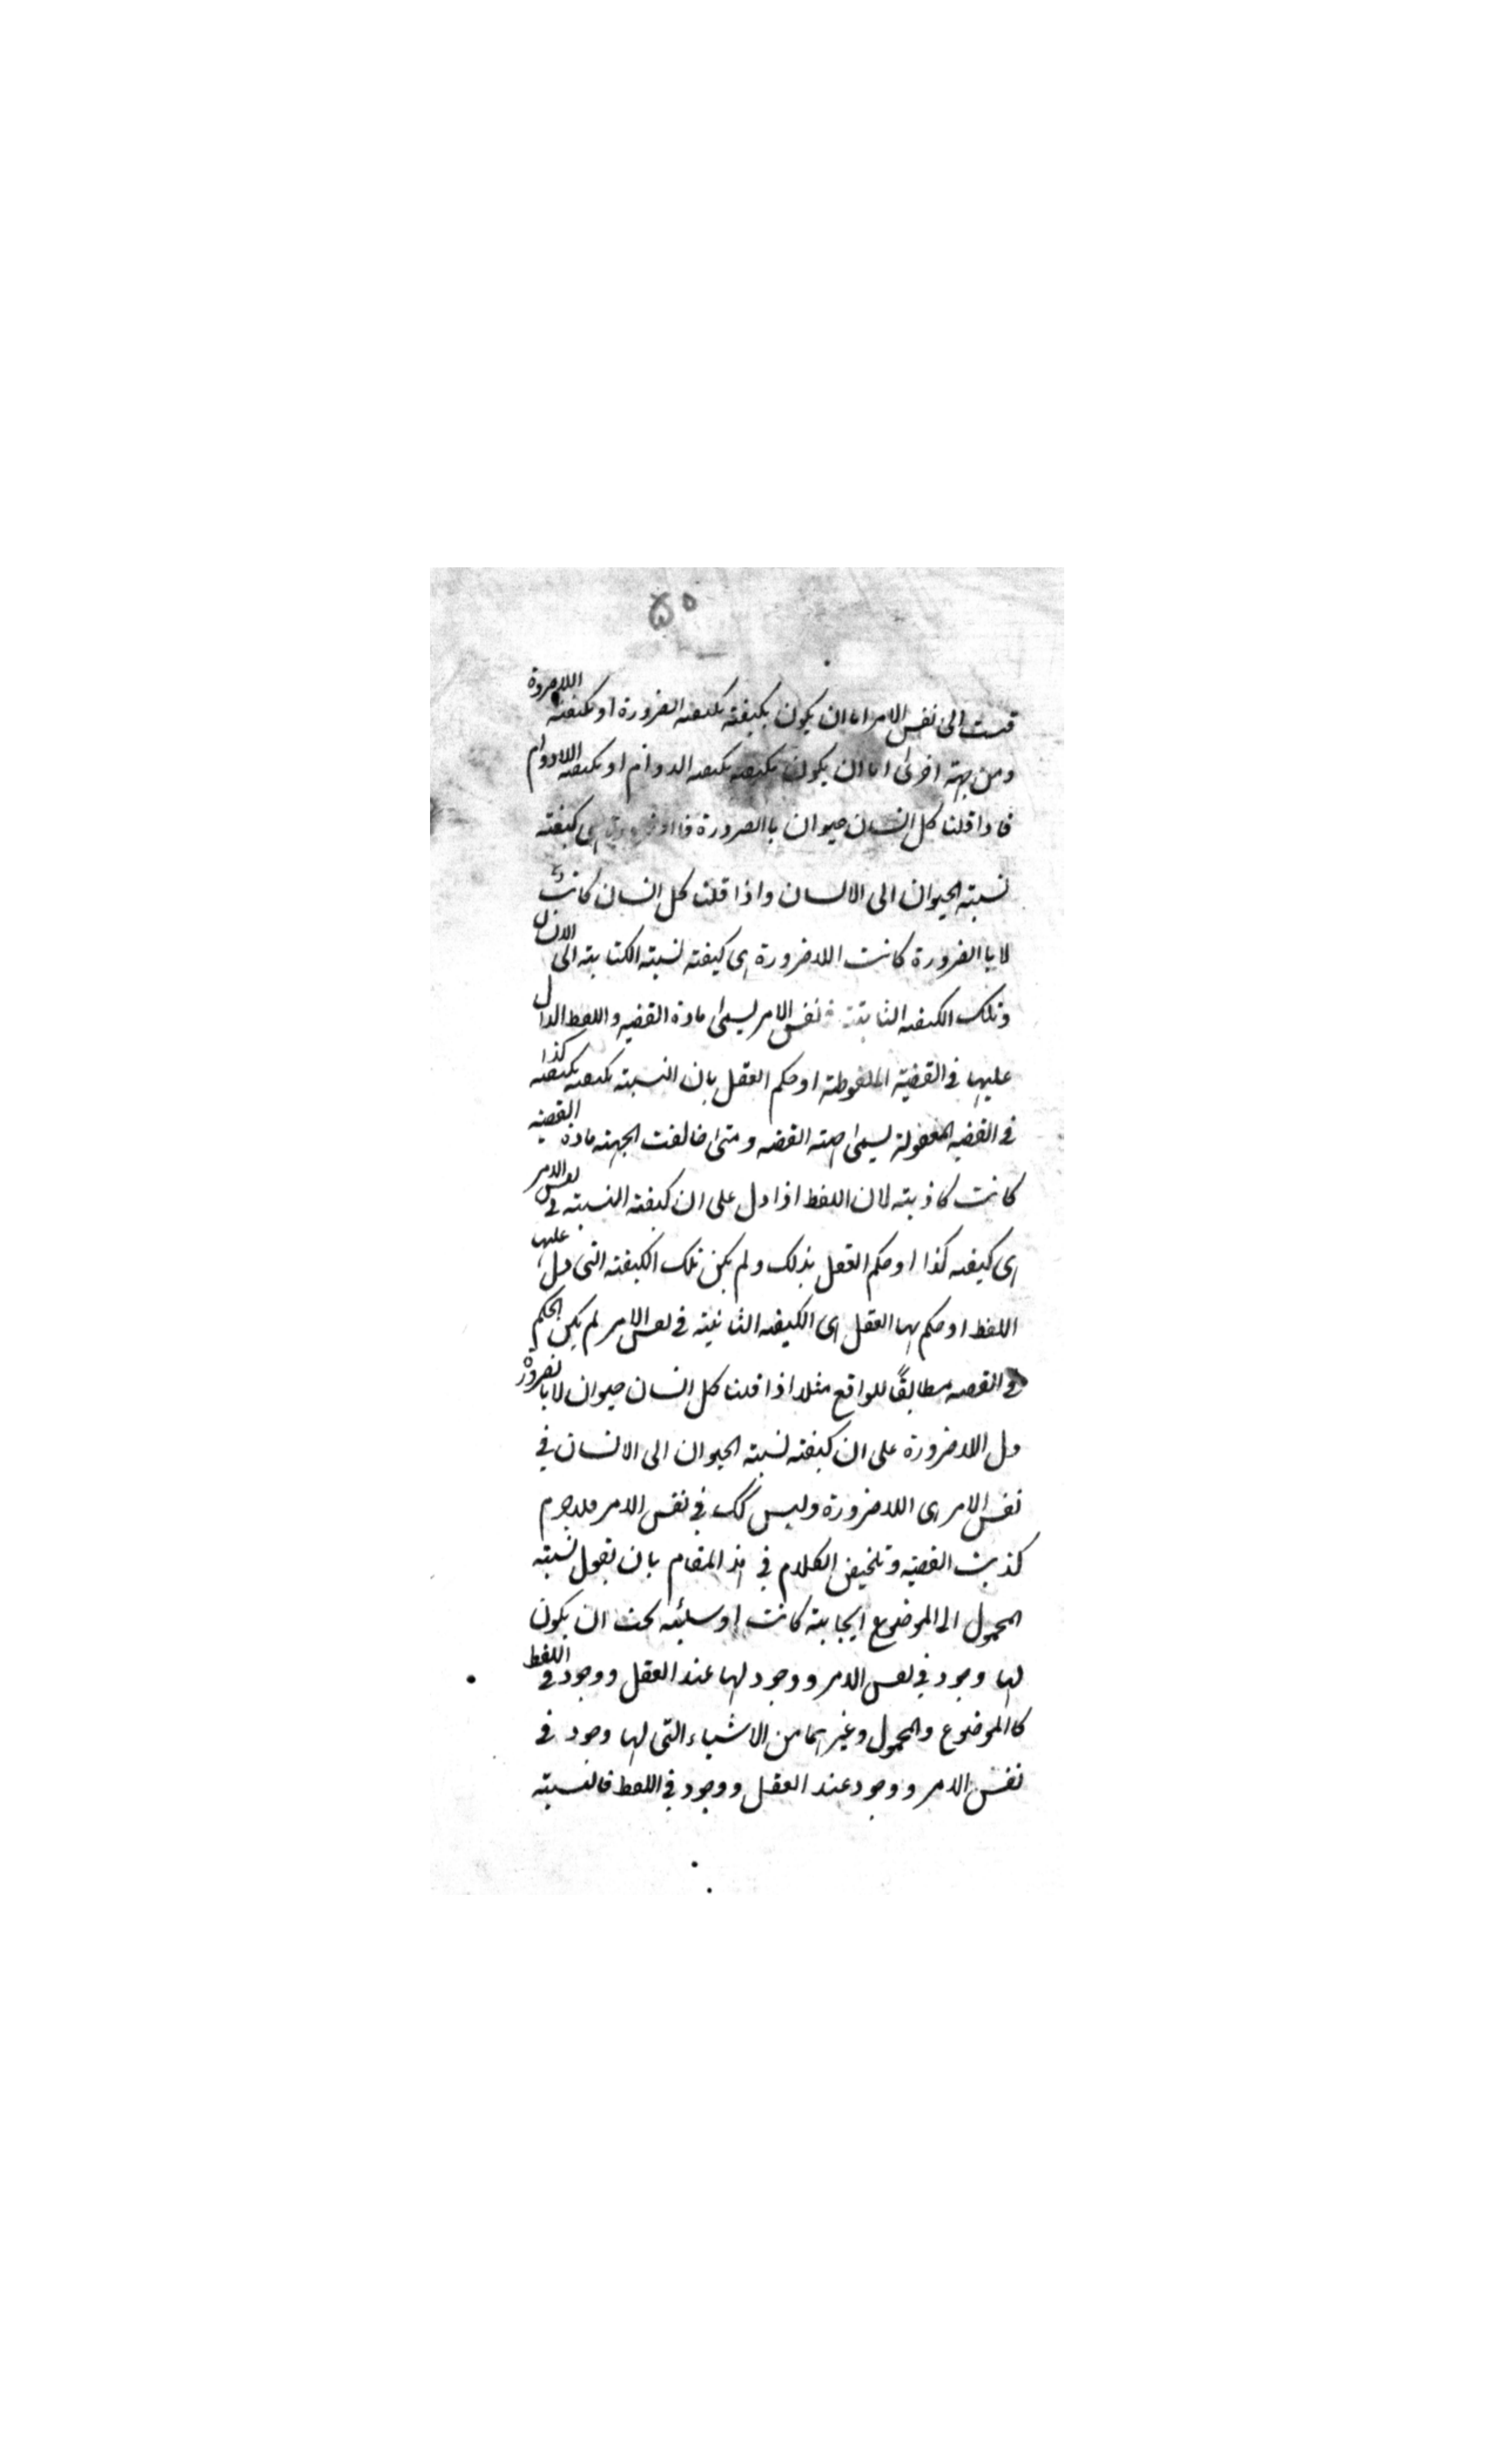 ۵۰
قست الى نفس الامر اما ان يكون بكيفية بكيفية الضرورة او بكيفية اللاضرورة
ومن جهته اخرى اما ان يكون بكيفية بكيفية الدوام او بكيفية اللادوام
فاذا قلنا كل انسان حيوان باالضرورة هى كيفته
نسبته الحيوان الى الانسان واذا قلنا كل انسان كاتب
لا باالضرورة كانت اللاضرورة هى كيفته نسبته الكتابته الى الانسان
وتلك الكيفيه الثابتة نفس الامر يسمى مادة القضيه واللفظ الدال
عليها فى القضيّة الملفوظة او حكم العقل بان النسبته بكيفيه بكيفيه كذا
فى القضيه المعقولة يسمى جهته القضيه ومتى خالفت الجهته مادة القضيه
كانت كاذبته لان اللفظ اذا دل على ان كيفته النسبته فى نفس الامر
هى كيفيه كذا او حكم العقل بذلك ولم يكن تلك الكيفته التى دل عليها
اللفظ او حكم بها العقل هى الكيفيه الثانيته فى نفس الامر لم يكن الحكم
فى القضيه مطابقًا للواقع مثلا اذا قلنا كل انسان حيوان لا بالضرورة
دل اللاضرورة على ان كيفته نسبته الحيوان الى الانسان فى
نفس الامر هى اللاضرورة وليس كك فى نفس الامر فلاجرم
كذبت القضيه وتلخيص الكلام فى هذ المقام بان نقول نسبته
المحمول الى الموضوع ايجابيته كانت او سلبيه يجب ان يكون
لها وجود فى نفس الامر ووجود لها عند العقل ووجود فى اللفظ
كاالموضوع والمحمول وغيرهما من الاشياء التى لها وجود فى
نفس الامر ووجود عند العقل ووجود فى اللفظ فالنسبته